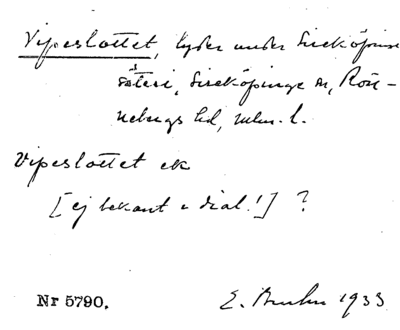 Vipeslottet, lyder under Sireköpinge
säteri, Sireköpinge sn, Rön-
nebergs hd, mlm. l.
Vipeslottet ek
[ej bekant i dial.!] ?
Nr 5790. E. Bruhn 1933